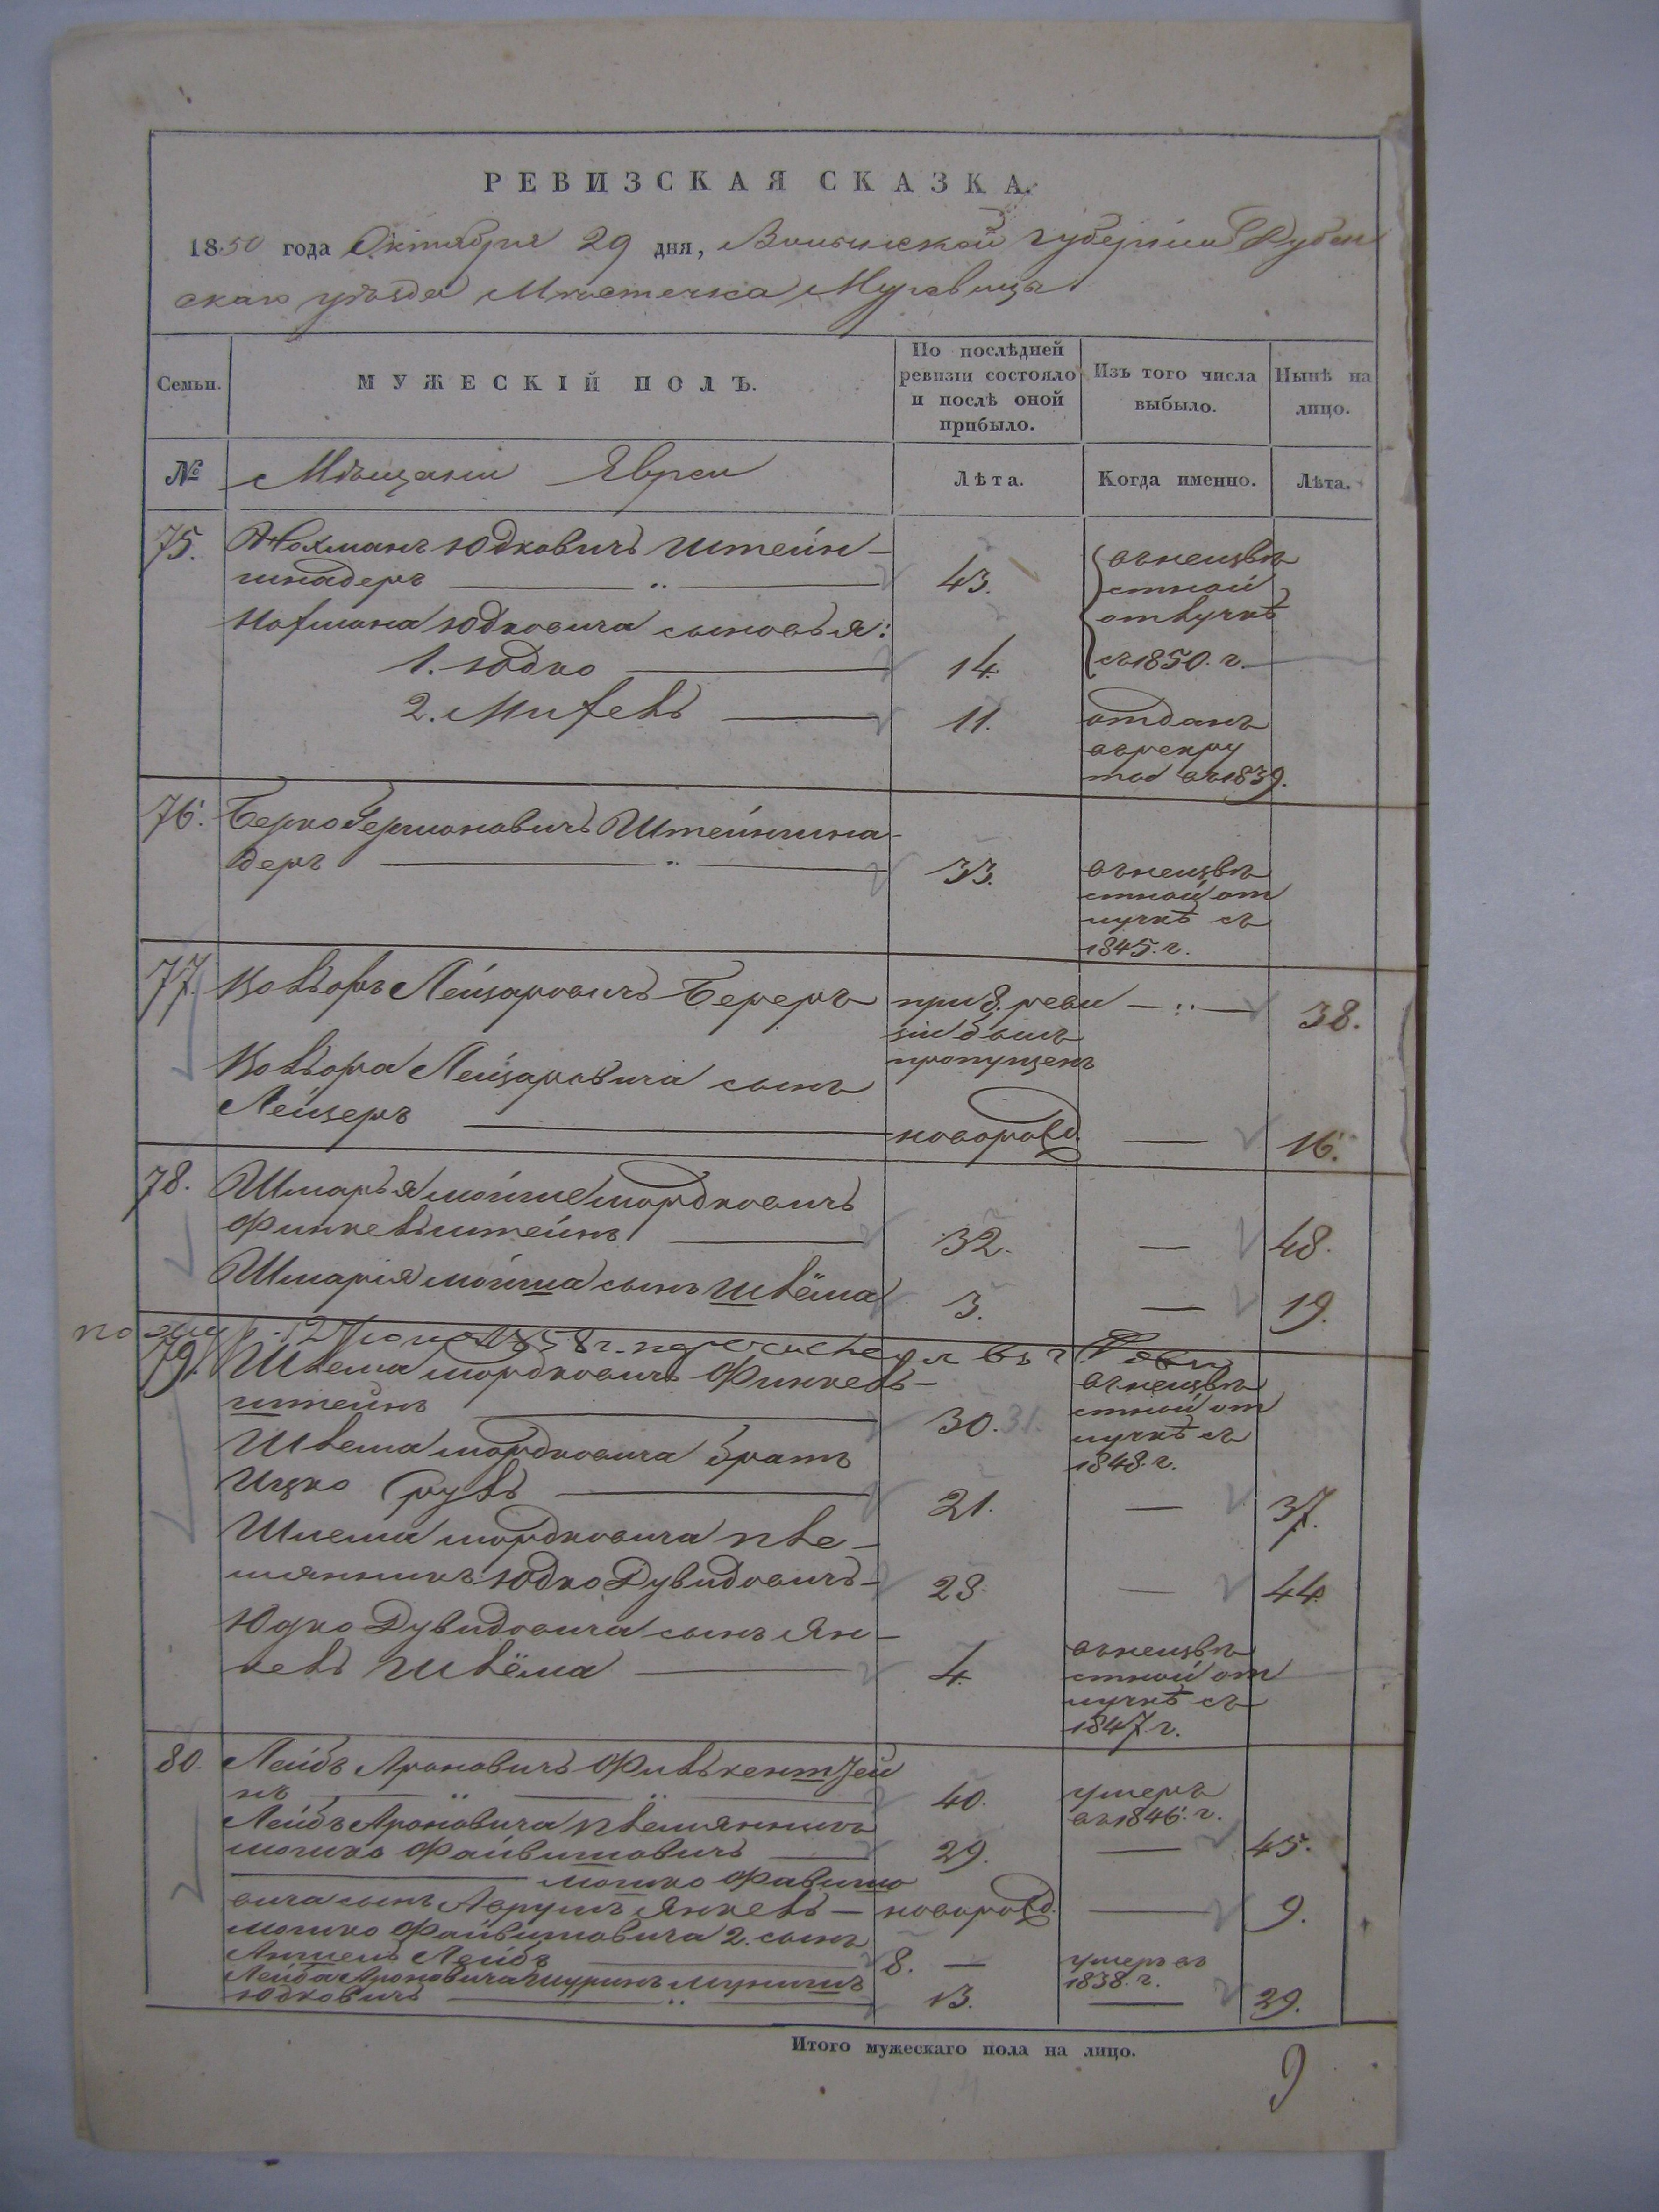 РЕВИЗСКАЯ СКАЗКА.
1850 года Октября 29 дня, Волынской губерніи Дубен
скаго уѣзда Мѣстечка Муравица
Семьи.
МУЖЕСКІЙ ПОЛЪ.
По послѣдней ревизіи состояло и послѣ оной прибыло.
Изъ того числа выбыло.
Нынѣ на лицо.
№
Мѣщани Явреи
Лѣта.
Когда именно.
Лѣта.
75. Нохманъ Юдковичъ Штейн-
шнадеръ 43. въ неизвѣ
стной
Нохмана Юдковича сыновья: отлучкѣ
1. Юдко 14. съ 1850. г.
2. Михель 11. отданъ
в рекру
ты въ 1839.
76. Берко Бермоновичъ Штейншна-
деръ 33. въ неизвѣ
стной от
лучкѣ съ
1845. г.
77. Лейзаровичъ Береръ при 8. реви 38.
зіи былъ
пропущенъ
Лейзаровича сынъ
Лейзеръ новорожд. 16.
78. Шмарья Мойше Мордковичъ
Финкельштейнъ 32. 48.
Шмарія Мойша сынъ Шлёма 3. 19.
по 12 1858 г. перечислен
79. Шлема Мордковичъ Финкель-
штейнъ 30. 31. въ неизвѣ
стной от
лучкѣ съ
1848. г.
Шлема Мордковича братъ
Ицко Сруль 21. 37.
Шлема Мордковича пле-
мянникъ Юдко Дувидовичъ 28. 44.
Юдко Дувидовича сынъ Ян-
кель Шлёма 4. въ неизвѣ
стной от
лучкѣ съ
1847. г.
80. Лейбъ Ароновичъ Филькенштей
нъ 40. умеръ
въ 1846. г.
Лейбъ Ароновича племянникъ
Мошко Файвишовичъ 29. 45.
Мошко Фавишо
вича сынъ Аврумъ Янкель новорожд. 9.
Мошко Файвишовича 2. сынъ
Аншель Лейбъ 8. умеръ въ
1838. г.
Лейба Ароновича шуринъ Мунишъ
Юдковичъ 13. 29.
Итого мужескаго пола на лицо.
9